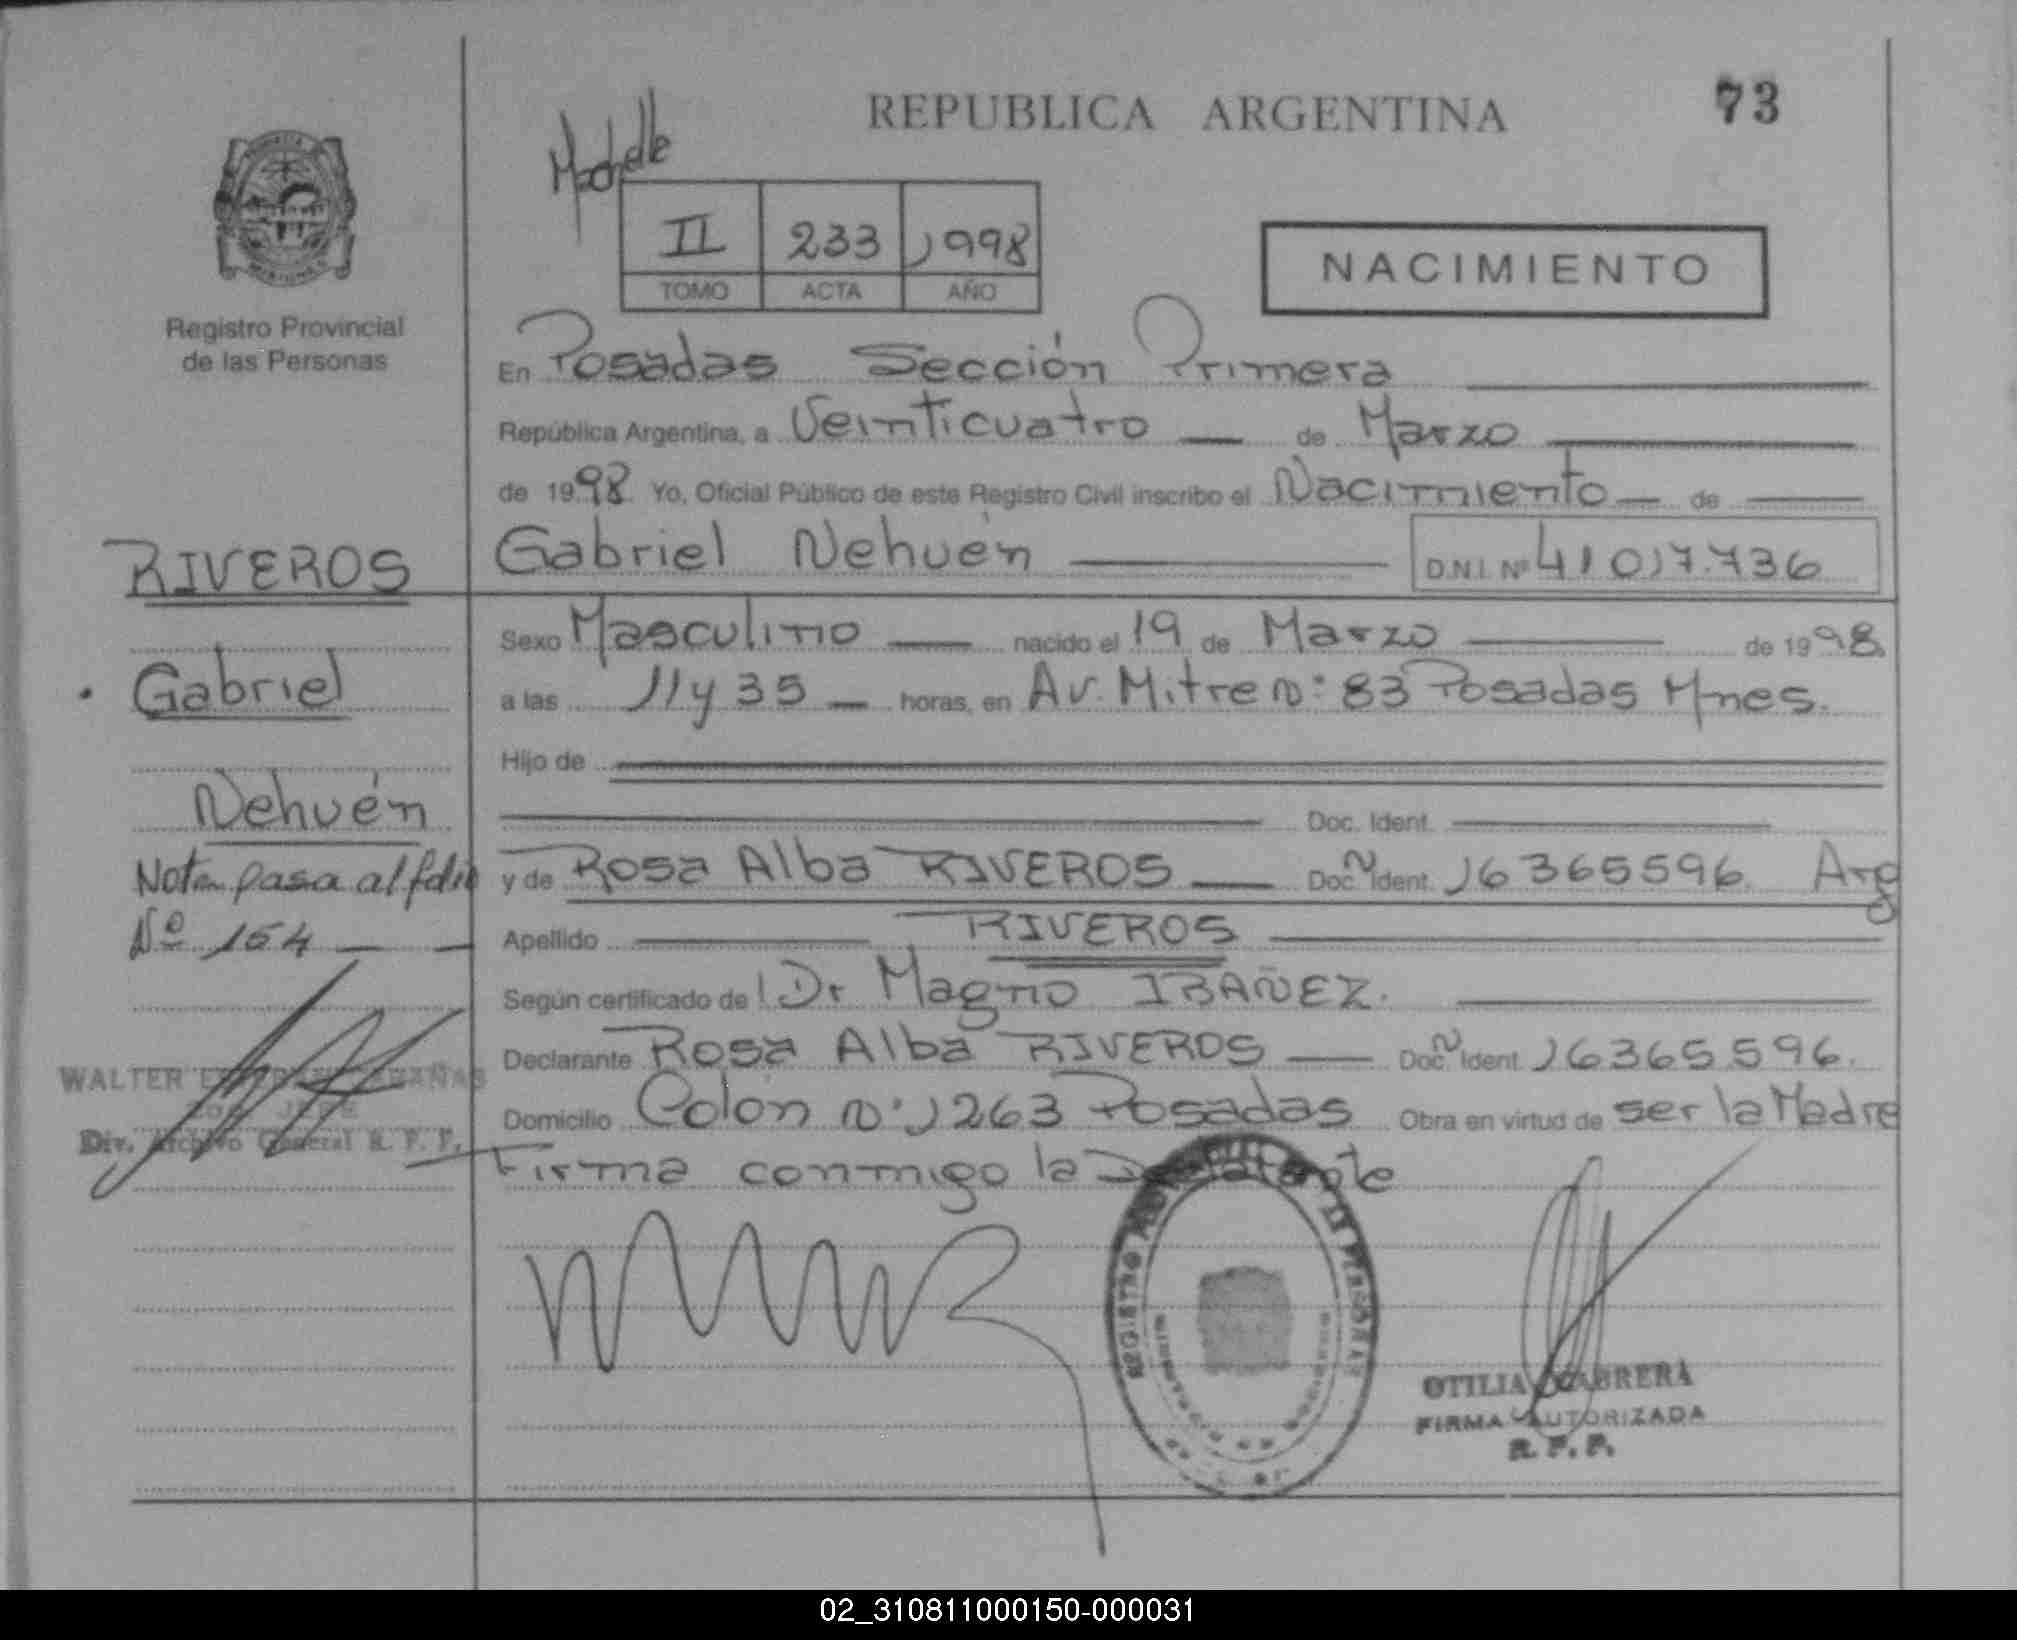 REPUBLICA ARGENTINA
73
II 233 1998
TOMO ACTA AÑO
NACIMIENTO
Registro Provincial
de las Personas
En Posadas Sección Primera
República Argentina, a Veinticuatro de Marzo
de 1998 Yo, Oficial Público de este Registro Civil inscribo el Nacimiento de
RIVEROS
Gabriel Nehuén
D.N.I. Nº 41017.736
Sexo Masculino nacido el 19 de Marzo de 1998.
Gabriel
a las 11 y 35 horas, en Av. Mitre n: 83 Posadas Mnes.
Hijo de
Nehuén
Doc. Ident.
Nota pasa al folio
Nº 154
y de Rosa Alba RIVEROS Doc. Ident. N 16365596. Arg
Apellido RIVEROS
Según certificado de Dr Magno IBAÑEZ.
Declarante Rosa Alba RIVEROS Doc. Ident. N 16365.596.
WALTER
Div. Archivo General R. P. P.
Domicilio Colón n: 1263 Posadas Obra en virtud de ser la Madre
Firma conmigo la Declarante
OTILIA CABRERA
FIRMA AUTORIZADA
R. P. P.
02_310811000150-000031